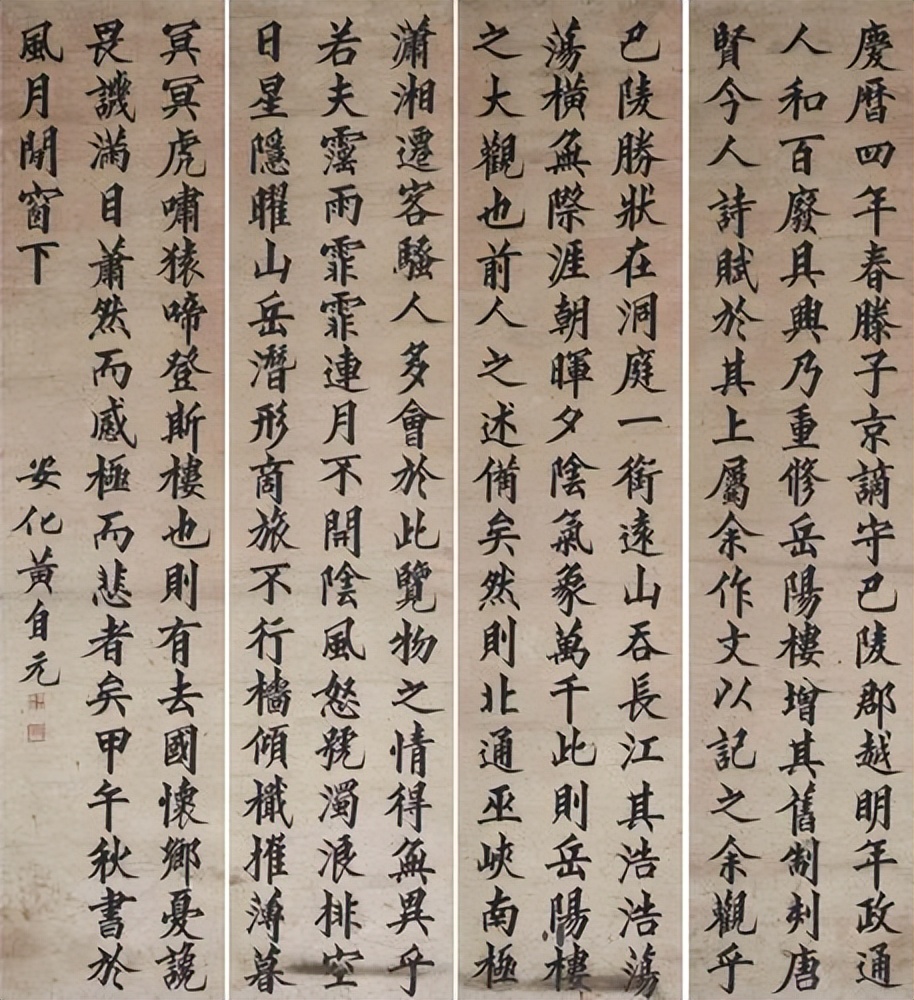 慶曆四年春滕子京謫守巴陵郡越明年政通
人和百廢具興乃重修岳陽樓增其舊制刻唐
賢今人詩賦於其上屬余作文以記之余觀乎
巴陵勝狀在洞庭一銜遠山吞長江其浩浩蕩
蕩橫無際涯朝暉夕陰氣象萬千此則岳陽樓
之大觀也前人之述備矣然則北通巫峽南極
瀟湘遷客騷人多會於此覽物之情得無異乎
若夫霪雨霏霏連月不開陰風怒號濁浪排空
日星隱曜山岳潛形商旅不行檣傾檝摧薄暮
冥冥虎嘯猿啼登斯樓也則有去國懷鄉憂讒
畏譏滿目蕭然而感極而悲者矣甲午秋書於
風月閒窗下
安化黃自元